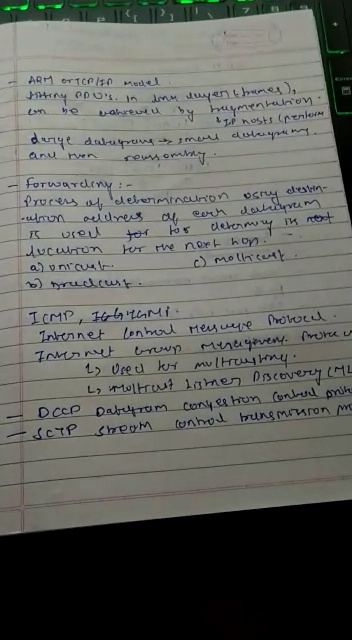 - ARM or TCP/IP model.
fitting PDU's. in link layer (frames),
can be achieved by fragmentation.
↳ IP hosts (perform
large datagrams → small datagrams
and then reassembly.
- Forwarding :-
Process of determination using destin-
-ation address of each datagram
is used for to determine its next
location for the next hop.
a) unicast. c) multicast.
b) broadcast.
ICMP,
Internet Control Message Protocol.
Internet Group Management Protoco
↳ Used for multicasting.
↳ Multicast Listner Discovery (ML
- DCCP Datagram congestion control proto
- SCTP stream control transmission pro